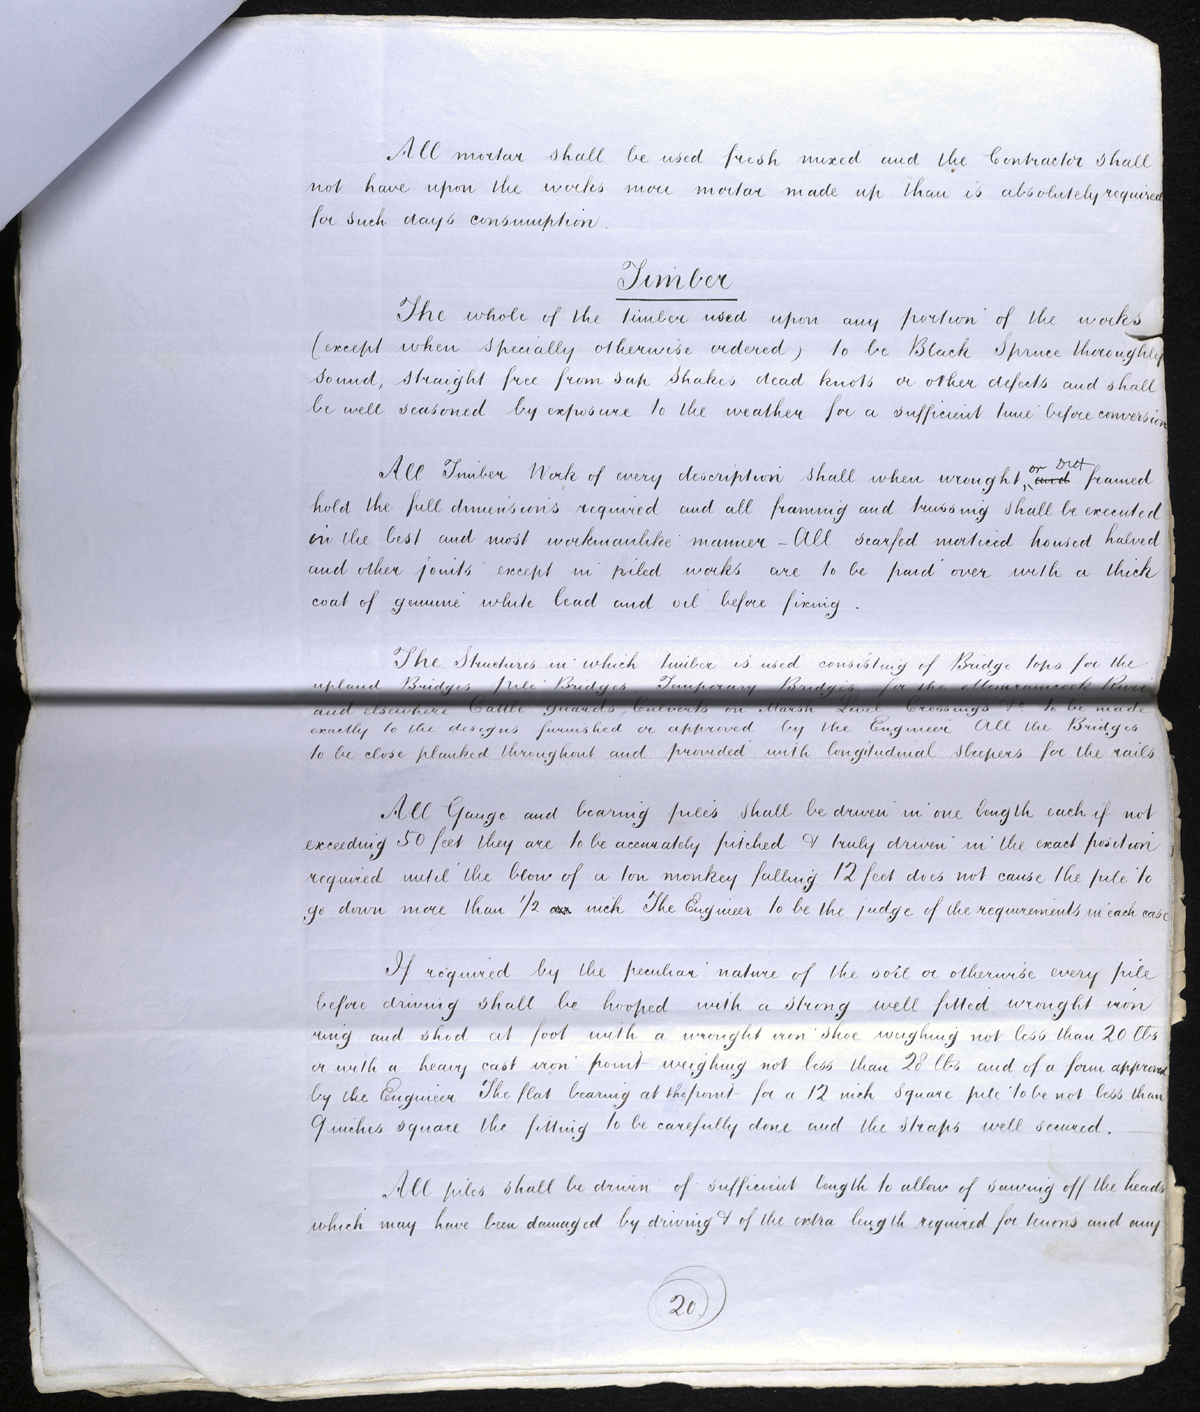 All mortar shall be used fresh mixed and the Contractor shall
not have upon the works more mortar made up than is absolutely required
for such days consumption.
Timber
The whole of the timber used upon any portion of the works
(except when specially otherwise ordered) to be Black Spruce thoroughly
sound, straight free from sap shakes dead knots or other defects and shall
be well seasoned by exposure to the weather for a sufficient time before conversion
All Timber Work of every description shall when wrought, or framed
hold the full dimensions required and all framing and trussing shall be executed
in the best and most workmanlike manner - All scarfed morticed housed halved
and other joints except in piled works are to be paid over with a thick
coat of genuine white lead and oil before fixing.
The Structures in which timber is used consisting of Bridge tops for the
upland Bridges Pile Bridges Temporary Bridges for the Memramcook River
and elsewhere Cattle Guards Culverts on Marsh Level Crossings &c to be made
exactly to the designs furnished or approved by the Engineer All the Bridges
to be close planked throughout and provided with longitudinal sleepers for the rails
All Gauge and bearing piles shall be driven in one length each if not
exceeding 50 feet they are to be accurately pitched & truly driven in the exact position
required until the blow of a ton monkey falling 12 feet does not cause the pile to
go down more than 1/2 inch The Engineer to be the judge of the requirements in each case
If required by the peculiar nature of the soil or otherwise every pile
before driving shall be hooped with a strong well fitted wrought iron
ring and shod at foot with a wrought iron shoe weighing not less than 20 lbs
or with a heavy cast iron point weighing not less than 28 lbs and of a form approved
by the Engineer The flat bearing at the point for a 12 inch square pile to be not less than
9 inches square the fitting to be carefully done and the straps well secured.
All piles shall be driven of sufficient length to allow of sawing off the heads
which may have been damaged by driving & of the extra length required for tenons and any
20